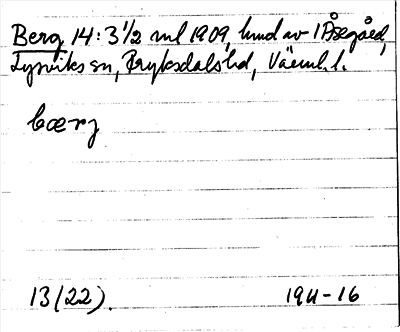 Berg, 14: 3 1/2 ml 1909, hund av 1 Åsegård,
Lysviks sn, Fryksdals hd, Värml. l.
bærj
13 (22).
1911-16